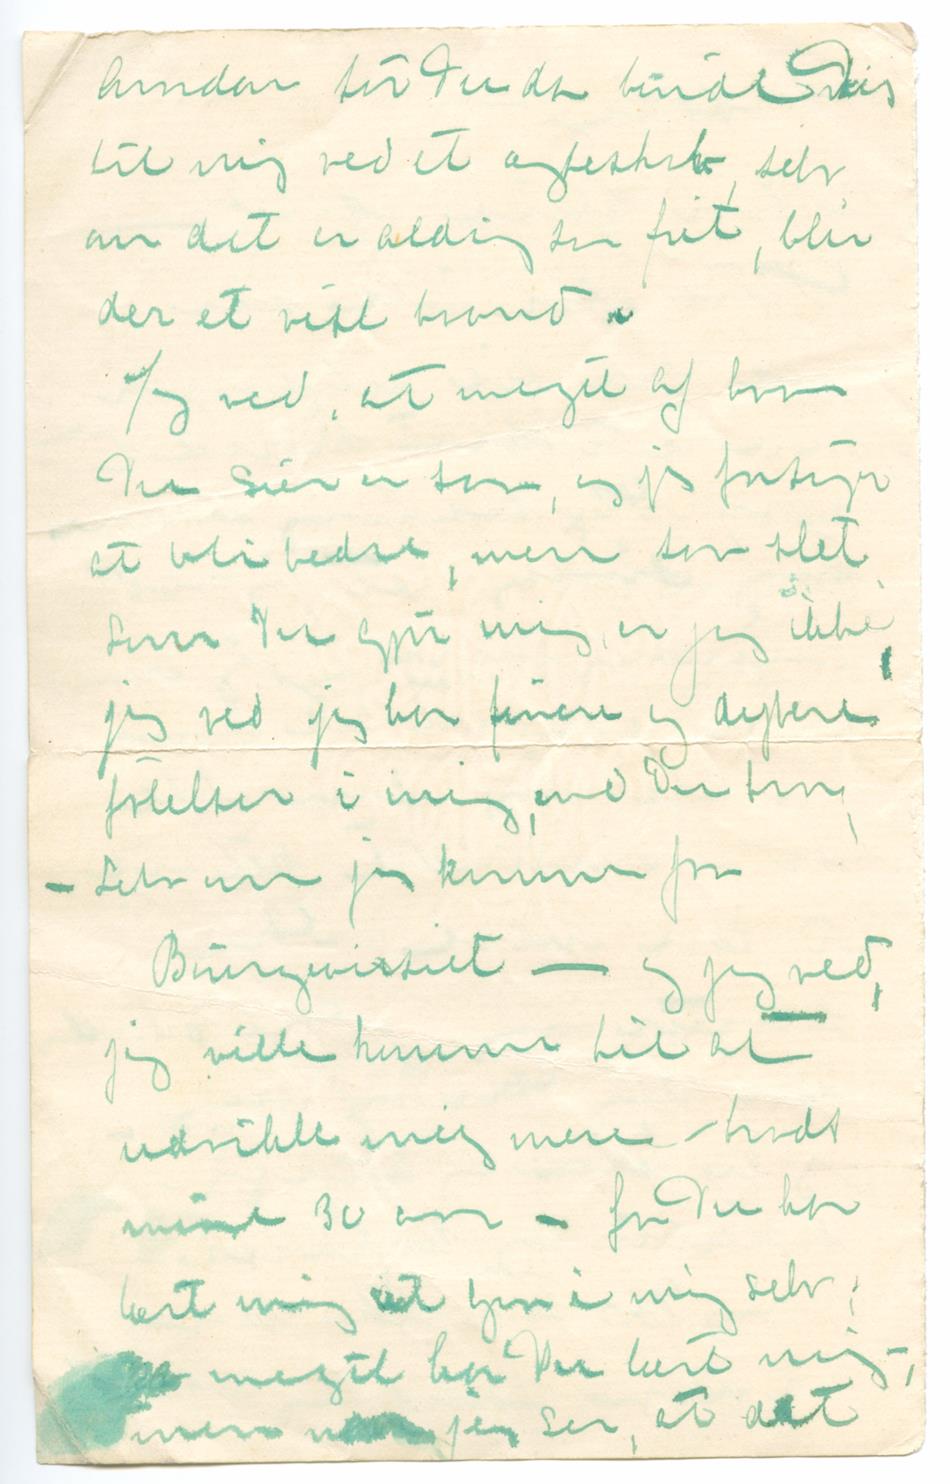 hvordan tör Du da binde Dig
til mig ved et ægteskab, selv
om det er aldrig saa frit, blir
der et visst baand.
Jeg ved, at meget af hva
Du sier er saa, og jeg forsöger
at bli bedre, men saa slet
som Du gjör mig, er jeg ikke,
jeg ved jeg har finere og dypere
fölelser i mig, end Du tror,
- selv om jeg kommer fra
— og jeg ved,
jeg ville komme til at
udvikle mig mere - trods
mine 30 aar - for Du har
lært mig at gaa i mig selv;
meget har Du lært mig,
men naar jeg ser, at det